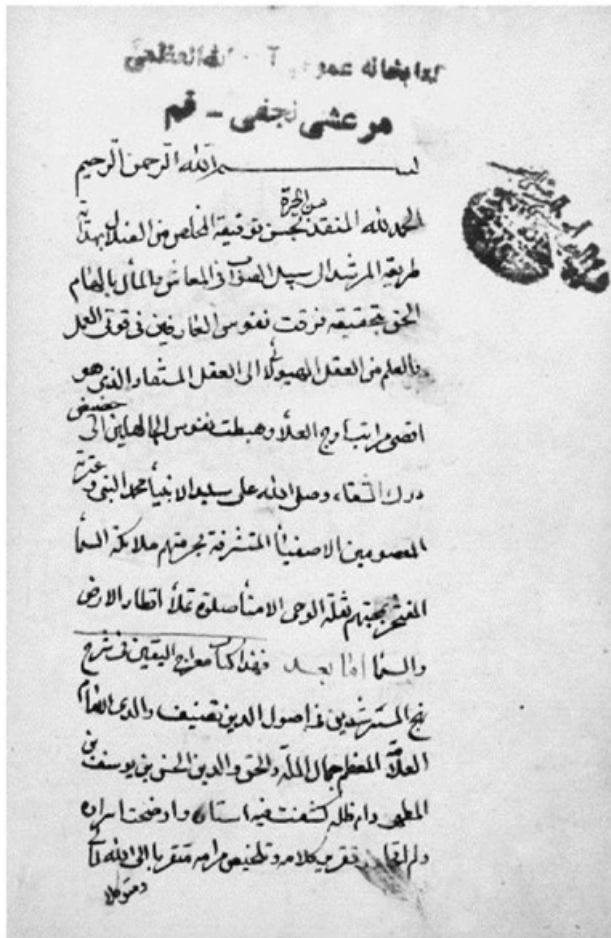 كتابخانه عمومى آيت الله العظمى
مرعشى نجفى - قم
بسم الله الرحمن الرحيم
من الحيرة
الحمد لله المنقذ بحسن توفيقه المخلص من الضلال بهداية
طريقه المرشد الى سبيل الصواب فى المعاش بالمأل بالهام
الحق بتحقيقه فرقت نفوس العارفين فى قوتى العمل
والعلم من العقل الهيولا الى العقل المستفاد الذى هو
اقصى مراتب اوج العلا وهبطت نفوس الجاهلين الى حضيض
درك الشقاء وصلى الله على سيد الانبيا محمد النبى وعترته
المعصومين الاصفيا المتشرفة بحرمتهم ملائكة السما
المفتخر بمحبتهم نقلة الوحى الامنا صلوة تملأ اقطار الارض
والسما اما بعد فهذا كتاب معراج اليقين فى شرح
نهج المسترشدين فى اصول الدين تصنيف والدى الامام
العلامة المعظم جمال الملة والحق والدين الحسن بن يوسف بن
المطهر دام ظله كشفت فيه استاره واوضحت اسراره
ولم تقرير كلامه وتلخيص مرامه متقربا الى الله تعالى
ومتوكلا